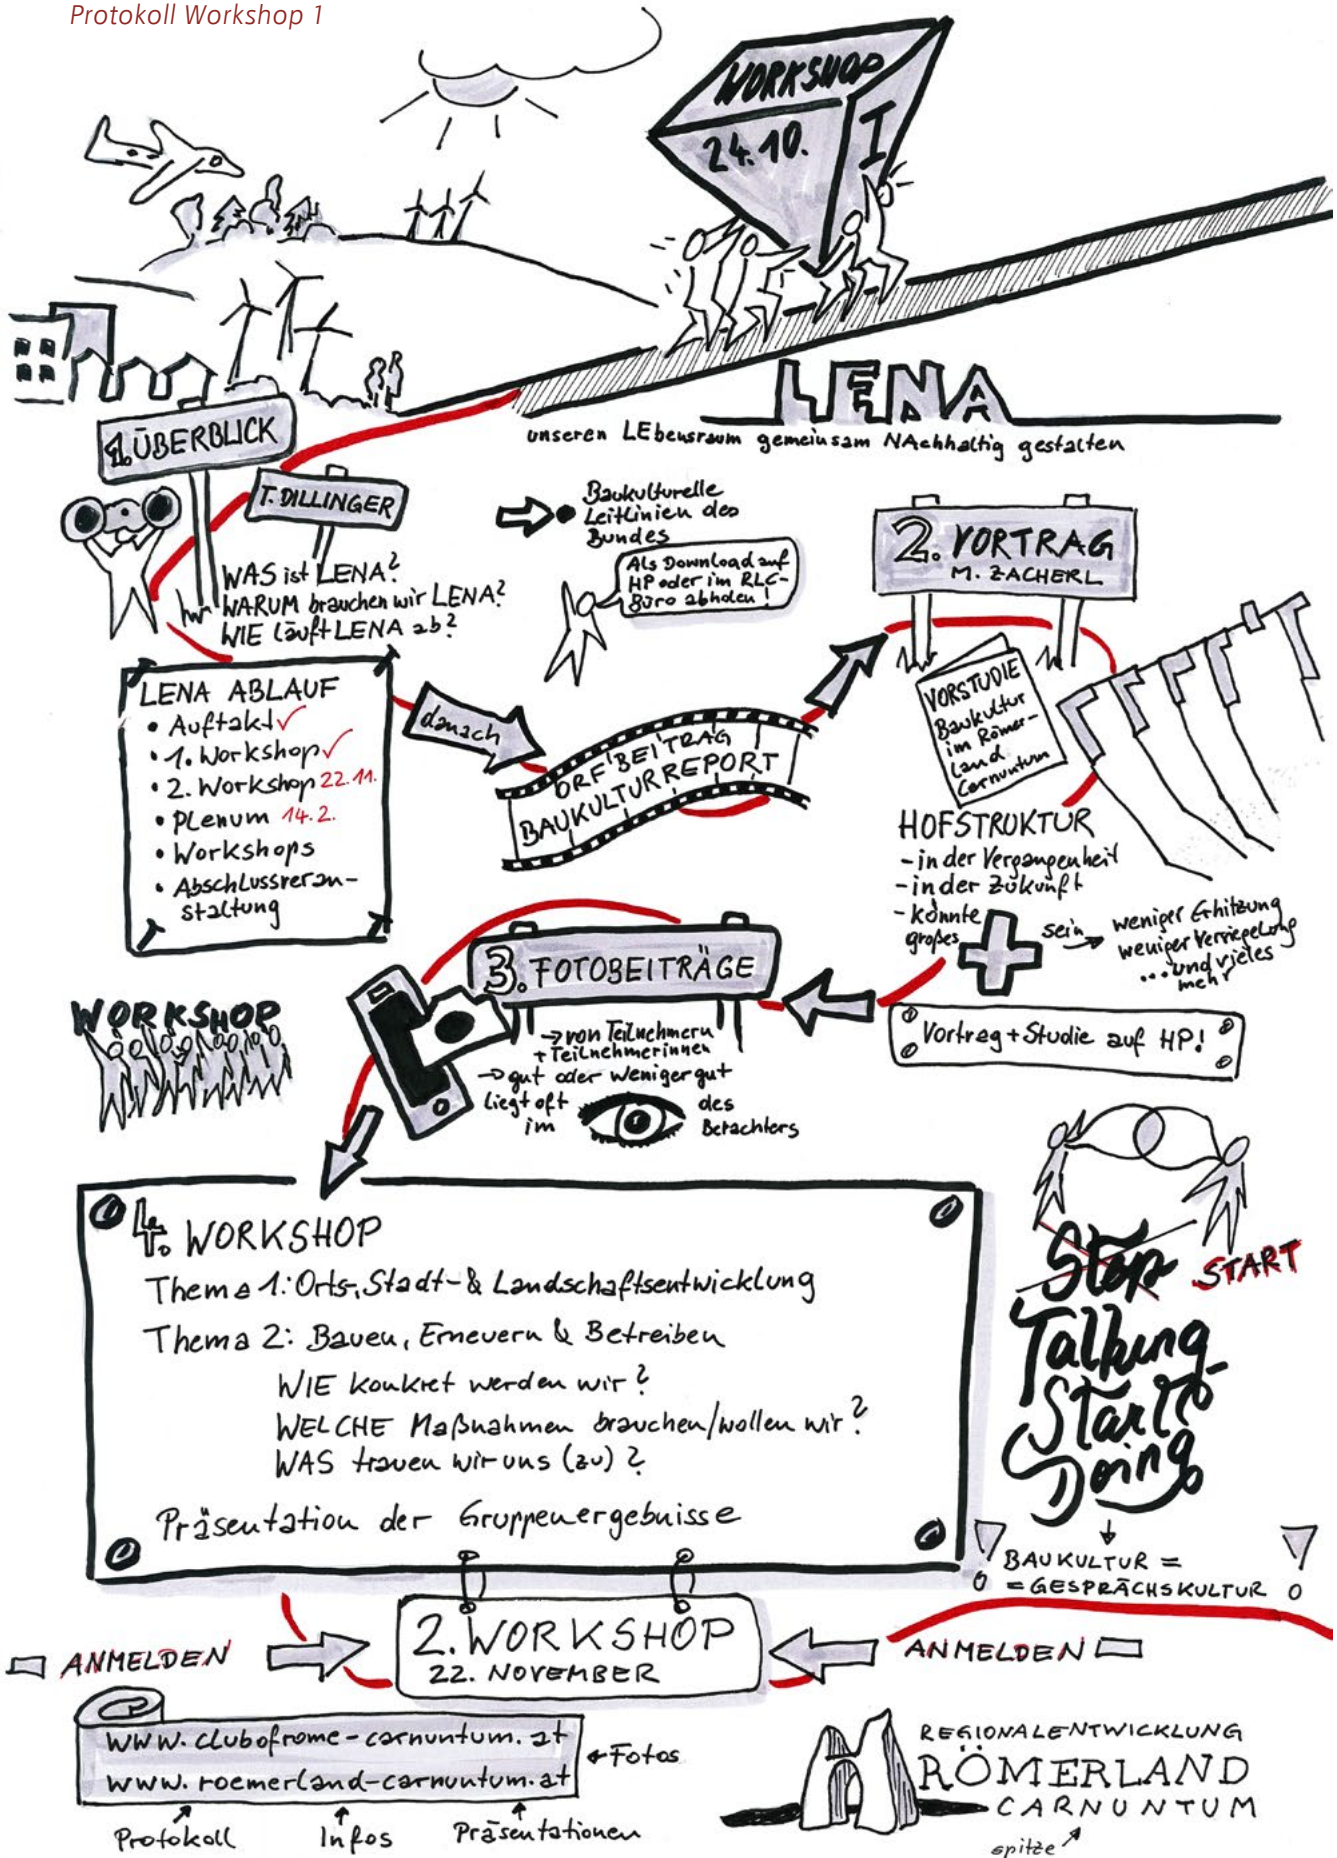 Protokoll Workshop 1
WORKSHOP
24.10.
I
LENA
unseren LEbensraum gemeinsam NAchhaltig gestalten
1. ÜBERBLICK
T. DILLINGER
WAS ist LENA?
WARUM brauchen wir LENA?
WIE läuft LENA ab?
Baukulturelle
Leitlinien des
Bundes
Als Download auf
HP oder im RLC-
Büro abholen!
2. VORTRAG
M. ZACHERL
LENA ABLAUF
• Auftakt ✓
• 1. Workshop ✓
• 2. Workshop 22.11.
• Plenum 14.2.
• Workshops
• Abschlussveran-
staltung
danach
ORF BEITRAG
BAUKULTURREPORT
VORSTUDIE
Baukultur
im Römer-
land
Carnuntum
HOFSTRUKTUR
- in der Vergangenheit
- in der Zukunft
- könnte
großes
sein
weniger Erhitzung
weniger Versiegelung
... und vieles
mehr
Vortrag + Studie auf HP!
3. FOTOBEITRÄGE
→ von Teilnehmern
+ Teilnehmerinnen
→ gut oder weniger gut
liegt oft
im
des
Betrachters
WORKSHOP
4. WORKSHOP
Thema 1: Orts-, Stadt- & Landschaftsentwicklung
Thema 2: Bauen, Erneuern & Betreiben
WIE konkret werden wir?
WELCHE Maßnahmen brauchen/wollen wir?
WAS trauen wir uns (zu)?
Präsentation der Gruppenergebnisse
Stop START
Talking
Start
Doing
BAUKULTUR =
= GESPRÄCHSKULTUR
2. WORKSHOP
22. NOVEMBER
ANMELDEN
ANMELDEN
www.clubofrome-carnuntum.at
www.roemerland-carnuntum.at
Fotos
Protokoll
Infos
Präsentationen
REGIONALENTWICKLUNG
RÖMERLAND
CARNUNTUM
spitze